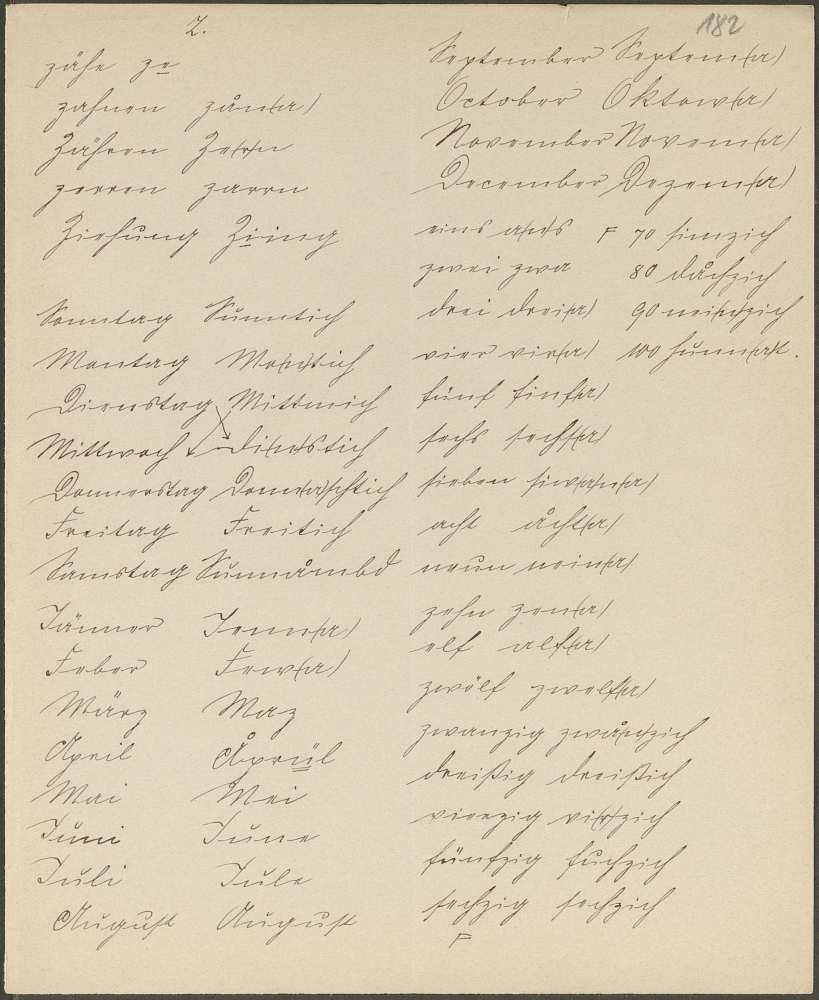 Z.
182
zähe ze
zahnen zån(a)
Zähren Ze(r)n
zerren zarrn
Ziehung Ziing
Sonntag Sunntich
Montag Mo(n)tich
Dienstag Mittwich
Mittwoch Di(n)stich
Donnerstag Donn(a)schtich
Freitag Freitich
Samstag Sunnåmbd
Jänner Jenn(a)
Feber Few(a)
März Maz
April Åprül
Mai Mei
Juni June
Juli Jule
August August
September Septem(a)
October Oktow(a)
November Novem(a)
December Dezem(a)
eins a(n)s F 70 simzich
zwei zwa 80 åchzich
drei drei(a) 90 nei(n)zich
vier vir(a) 100 hunn(a)t.
fünf finf(a)
sechs sechs(a)
sieben siw(a)n(a)
acht åcht(a)
neun nein(a)
zehn zen(a)
elf alf(a)
zwölf zwelf(a)
zwanzig zwå(n)zich
dreißig dreißich
vierzig vi(r)zich
fünfzig fuchzich
sechzig sechzich
F